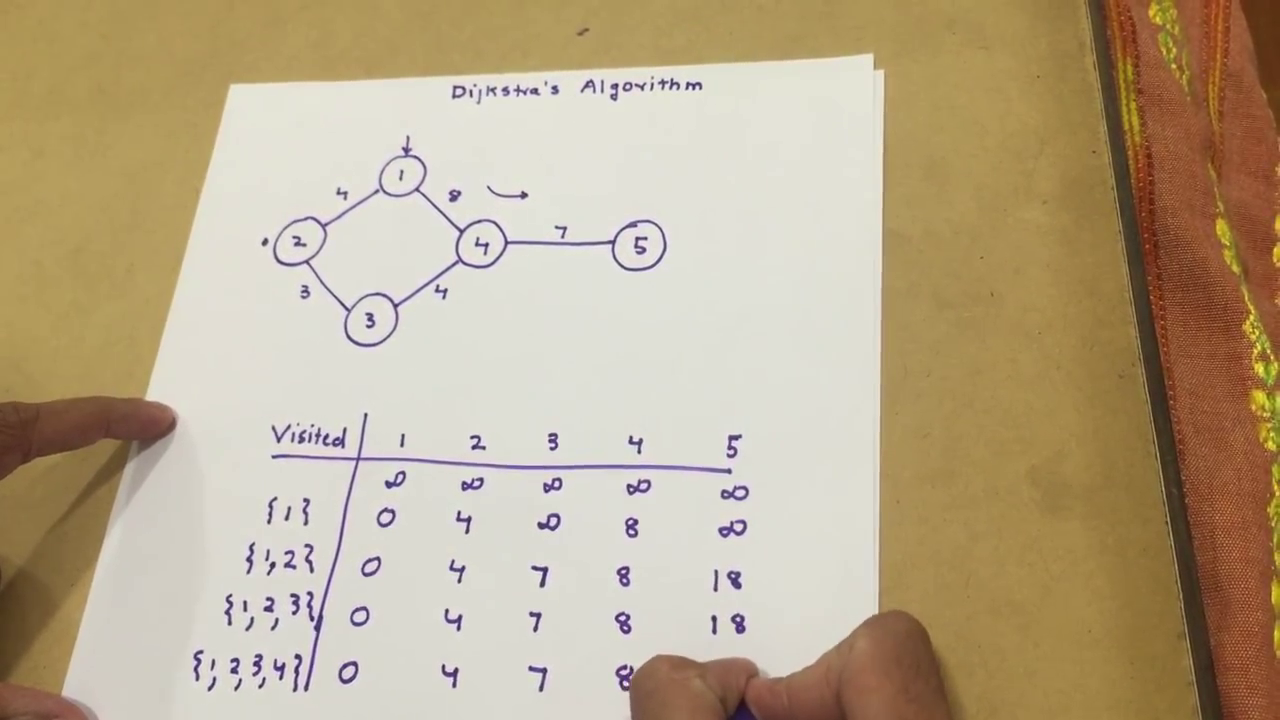 Dijkstra's Algorithm
1
4
8
2
4
7
5
3
4
3
Visited 1 2 3 4 5
∞ ∞ ∞ ∞ ∞
{1} 0 4 ∞ 8 ∞
{1,2} 0 4 7 8 18
{1,2,3} 0 4 7 8 18
{1,2,3,4} 0 4 7 8